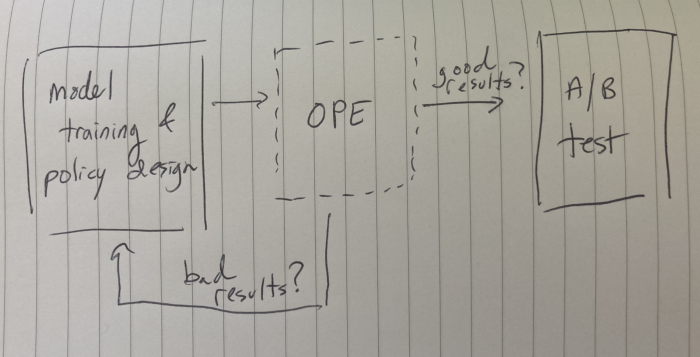 model
training &
policy design
OPE
good
results?
A/B
test
bad
results?